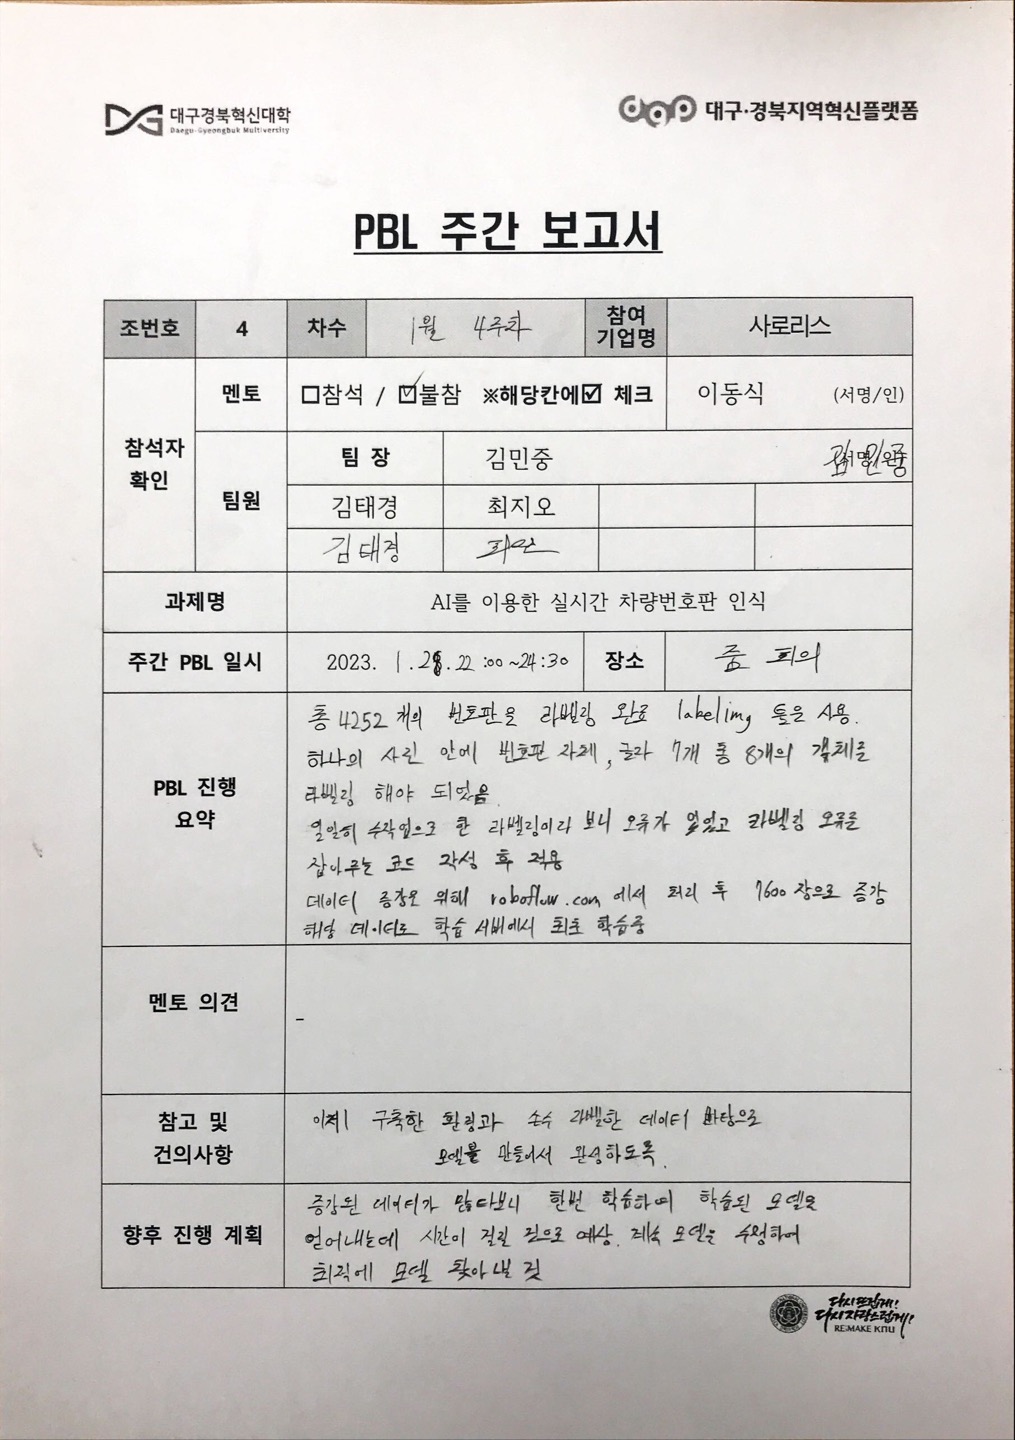 대구경북혁신대학
Daegu-Gyeongbuk Multiversity
dgp 대구·경북지역혁신플랫폼
PBL 주간 보고서
조번호 4 차수 1월 4주차 참여 기업명 사로리스
참석자 확인
멘토 □참석 / ☑불참 ※해당칸에☑ 체크 이동식 (서명/인)
팀원
팀 장 김민중 김민중
김태경 최지오
김태경
과제명 AI를 이용한 실시간 차량번호판 인식
주간 PBL 일시 2023. 1.28. 22:00~24:30 장소 줌 회의
PBL 진행 요약
총 4252 개의 번호판을 라벨링 완료 labelimg 툴을 사용.
하나의 사진 안에 번호판 자체, 글자 7개 총 8개의 객체를
라벨링 해야 되었음
일일히 수작업으로 한 라벨링이라 보니 오류가 있었고 라벨링 오류를
잡아주는 코드 작성 후 적용
데이터 증강을 위해 roboflow.com 에서 처리 후 7600장으로 증강
해당 데이터로 학습 서버에서 최초 학습중
멘토 의견
-
참고 및 건의사항
이제 구축한 환경과 손수 라벨한 데이터 바탕으로
모델을 만들어서 완성하도록.
향후 진행 계획
증강된 데이터가 많다보니 한번 학습하여 학습된 모델을
얻어내는데 시간이 걸릴 것으로 예상. 계속 모델을 수정하여
최적에 모델 찾아낼 것
다시 뜨겁게!
다시 자랑스럽게!
RE:MAKE KNU